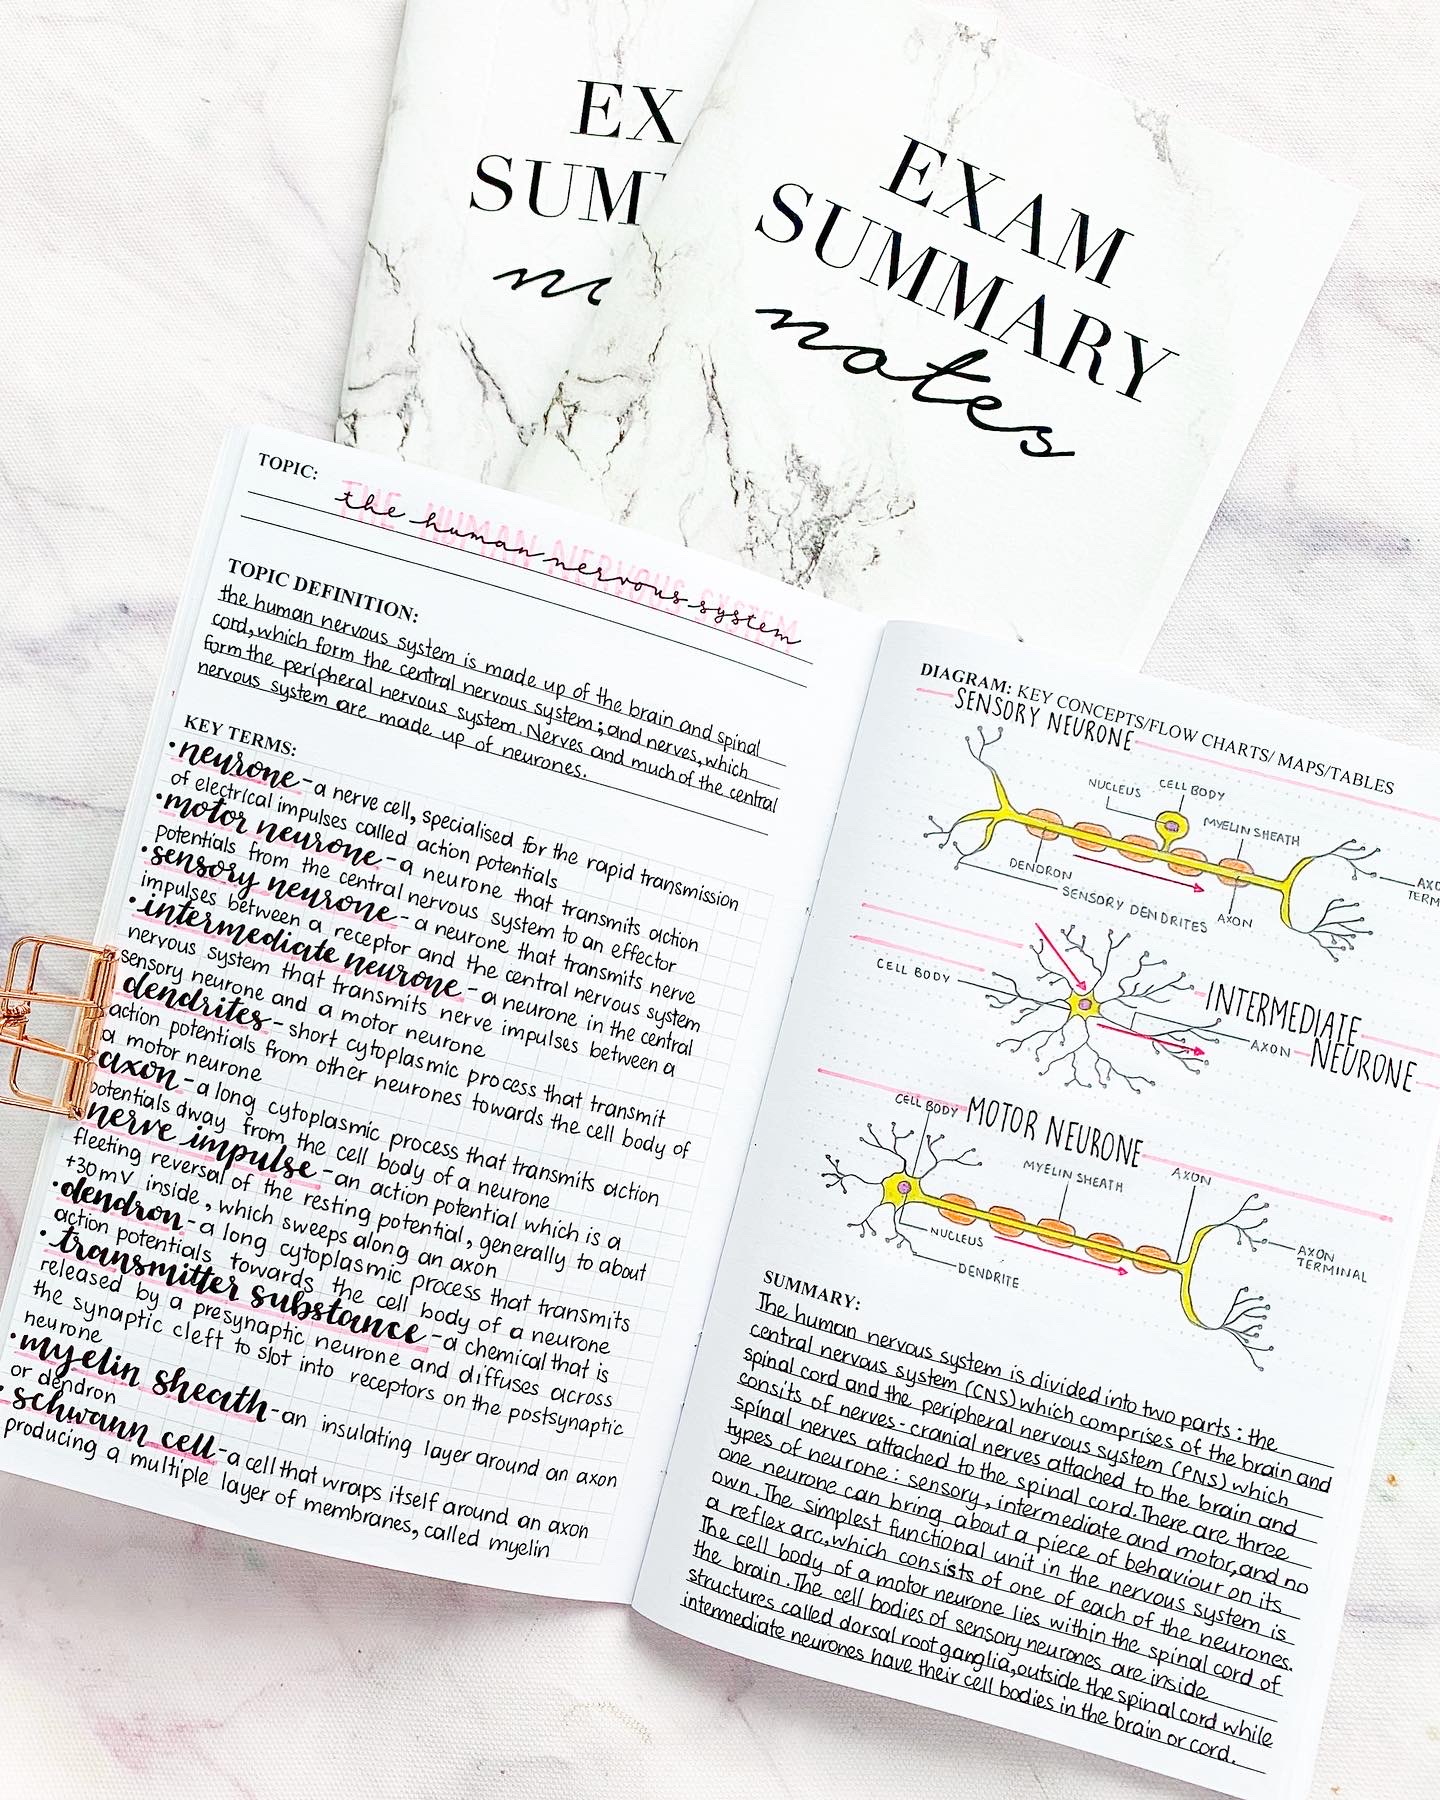 EX
SUM
EXAM
SUMMARY
notes
TOPIC:
THE HUMAN NERVOUS SYSTEM
the human nervous system
TOPIC DEFINITION:
the human nervous system is made up of the brain and spinal
cord, which form the central nervous system; and nerves, which
form the peripheral nervous system. Nerves and much of the central
nervous system are made up of neurones.
KEY TERMS:
• neurone - a nerve cell, specialised for the rapid transmission
of electrical impulses called action potentials
• motor neurone - a neurone that transmits action
potentials from the central nervous system to an effector
• sensory neurone - a neurone that transmits nerve
impulses between a receptor and the central nervous system
• intermediate neurone - a neurone in the central
nervous system that transmits nerve impulses between a
sensory neurone and a motor neurone
dendrites - short cytoplasmic process that transmit
action potentials from other neurones towards the cell body of
a motor neurone
axon - a long cytoplasmic process that transmits action
potentials away from the cell body of a neurone
nerve impulse - an action potential which is a
fleeting reversal of the resting potential, generally to about
+30mV inside, which sweeps along an axon
• dendron - a long cytoplasmic process that transmits
action potentials towards the cell body of a neurone
• transmitter substance - a chemical that is
released by a presynaptic neurone and diffuses across
the synaptic cleft to slot into receptors on the postsynaptic
neurone
• myelin sheath - an insulating layer around an axon
or dendron
• schwann cell - a cell that wraps itself around an axon
producing a multiple layer of membranes, called myelin
DIAGRAM: KEY CONCEPTS/FLOW CHARTS/ MAPS/TABLES
SENSORY NEURONE
NUCLEUS
CELL BODY
MYELIN SHEATH
DENDRON
SENSORY DENDRITES
AXON
AXO
TERM
CELL BODY
INTERMEDIATE
AXON
NEURONE
CELL BODY
MOTOR NEURONE
MYELIN SHEATH
AXON
NUCLEUS
DENDRITE
AXON
TERMINAL
SUMMARY:
The human nervous system is divided into two parts: the
central nervous system (CNS) which comprises of the brain and
spinal cord and the peripheral nervous system (PNS) which
consits of nerves - cranial nerves attached to the brain and
spinal nerves attached to the spinal cord. There are three
types of neurone: sensory, intermediate and motor, and no
one neurone can bring about a piece of behaviour on its
own. The simplest functional unit in the nervous system is
a reflex arc, which consists of one of each of the neurones.
The cell body of a motor neurone lies within the spinal cord of
the brain. The cell bodies of sensory neurones are inside
structures called dorsal root ganglia, outside the spinal cord while
intermediate neurones have their cell bodies in the brain or cord.